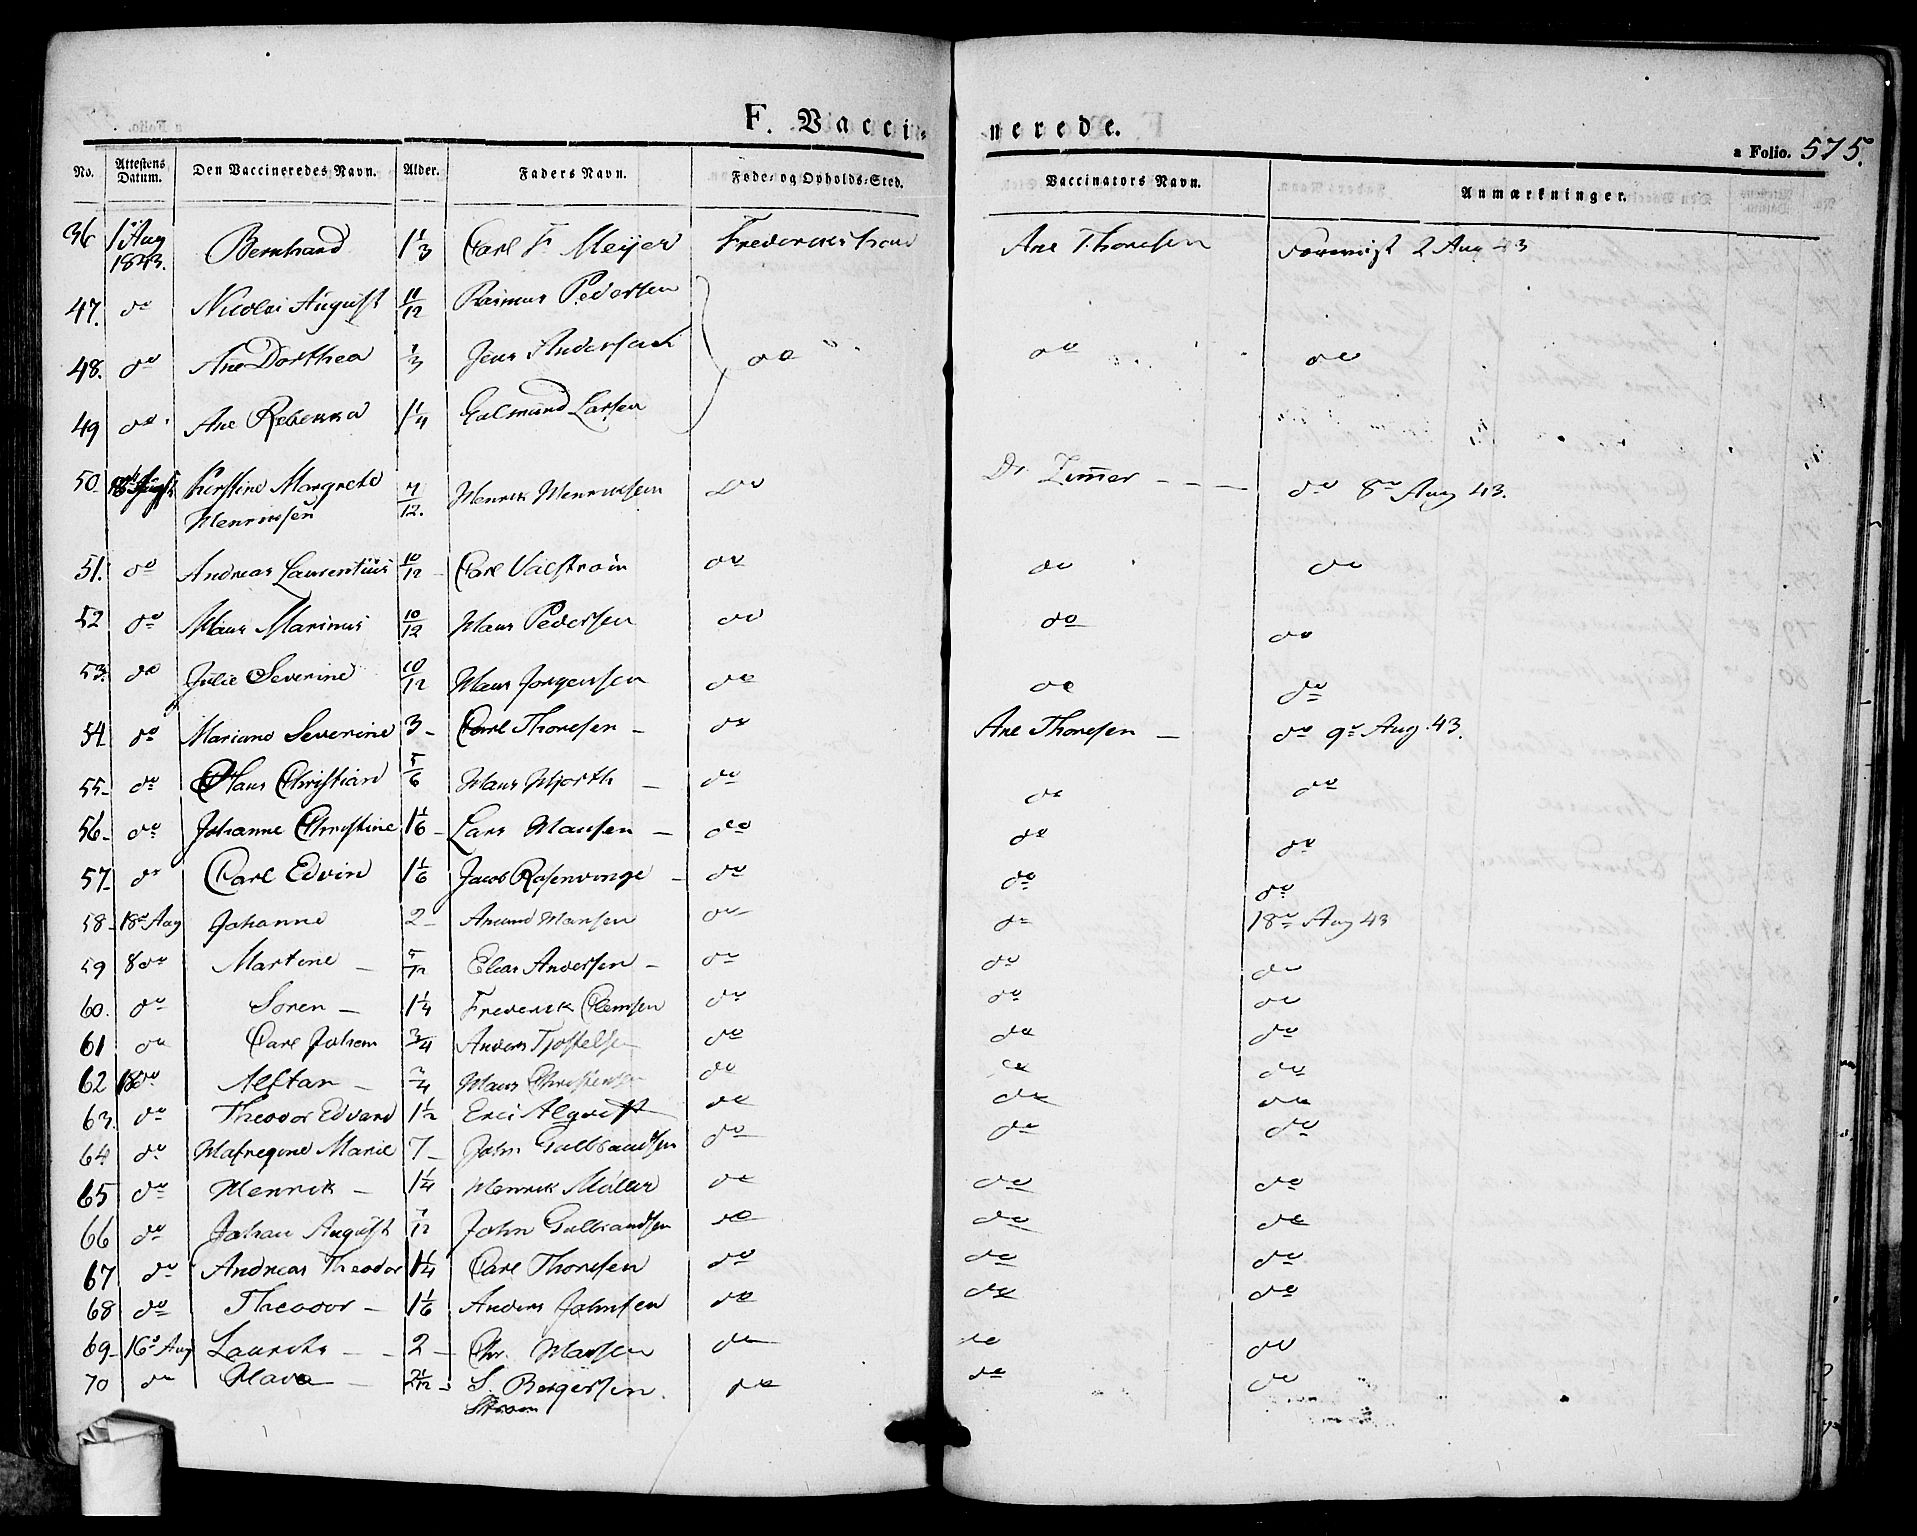 F. Vacci- nerede.
a Folio. 575.
No. Attestens Datum. Den Vaccineredes Navn. Alder. Faders Navn. Føde- og Opholds-Sted. Vaccinators Navn. Anmærkninger.
36 1 Aug 1843. Bernhard 1 1/3 Carl F. Meijer Ane Thoresen 2 Aug 43
47. do Nicolai August 11/12 Rasmus Pedersen
48. do Ane Dorthea 1/3 Jens do do do
49 do Ane Rebekka 1 1/4 Larsen
50 Kirstine Margrethe 7/12. Henrik Henriksen do Dr Zimmer - - - do 8de Aug 43.
Henriksen
51. do Andreas Laurentius 10/12 Carl do do do
52 do Hans Marinus 10/12 Hans Pedersen do do do
53. do Julie Severine 10/12 Hans Jorgensen do do do
54 do Mariane Severine 3 - Carl Thoresen - do Ane Thoresen - do 9de Aug. 43.
55- do Hans Christian 5/6 Hans Hjorth - do do do
56- do Johanne Christine 1 1/6 - Lars Hansen - do do do
57- do Carl Edvin 1 1/6 Jacob Rosenvinge - do do do
58- 18de Aug Johanne 2 - Amund Hansen do do 18de Aug 43
59 8 do Martine - 5/12 Elias Andersen - do do do
60. do Soren - 1 1/4 Frederik Clemsen do do do
61 do Carl Johan 3/4 Anders do do do
62 18 do - 3/4 Hans Christensen do do do
63. do Theodor Edvard 1 1/2 do do do
64 do Marie 7 - John Gulbrandsen do do do
65 do Henrik - 1 1/4 Henrik Møller do do do
66 do Johan August 7/12 John Gulbrandsen do do do
67 do Andreas Theodor 1 1/4 Carl Thoresen do do do
68 do Theodor - 1 1/6 Anders Johnsen do do do
69- 16de Aug - 2 - Chr. Hansen do do do
70 do - S. Bergersen. do do do
Strøm